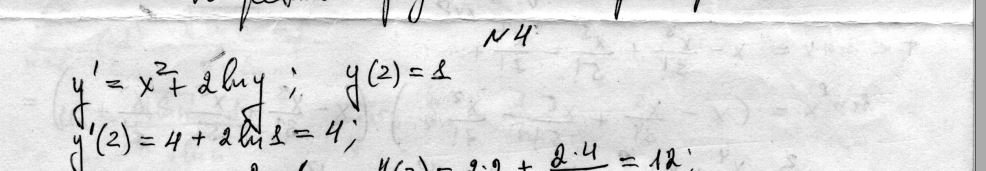 N4
y' = x² + 2 ln y ; y(2) = 1
y'(2) = 4 + 2 ln 1 = 4;
(2) = 2·2 + 2·4 = 12;